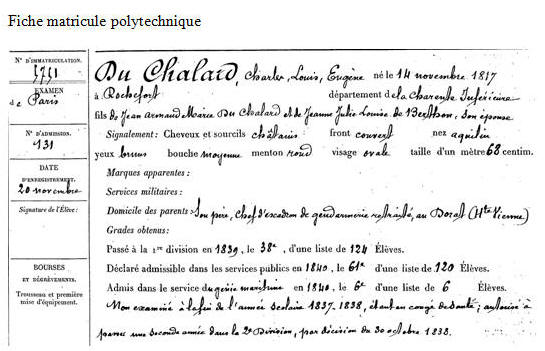 Fiche matricule polytechnique
N° D'IMMATRICULATION.
5751
EXAMEN
de Paris
N° D'ADMISSION.
131
DATE
D'ENREGISTREMENT.
20 novembre
Signature de l'Élève:
BOURSES
ET DÉGRÈVEMENTS.
Trousseau et première
mise d'équipement.
Du Chalard, Charles, Louis, Eugène né le 14 novembre 1817
à Rochefort département de la Charente Inférieure
fils de Jean Armand Marie Du Chalard et de Jeanne Julie Louise de Berthon, son épouse
Signalement: Cheveux et sourcils châtains front couvert nez aquilin
yeux bruns bouche moyenne menton rond visage ovale taille d'un mètre 68 centim.
Marques apparentes:
Services militaires:
Domicile des parents: Son père, chef d'escadron de gendarmerie retraité, au Dorat (Hte Vienne)
Grades obtenus:
Passé à la 1re division en 1839, le 38e, d'une liste de 124 Élèves.
Déclaré admissible dans les services publics en 1840, le 61e d'une liste de 120 Élèves.
Admis dans le service du génie maritime en 1840, le 6e d'une liste de 6 Élèves.
Non examiné à la fin de l'année scolaire 1837-1838, étant en congé de santé; autorisé à
passer une seconde année dans la 2e Division, par décision du 30 octobre 1838.